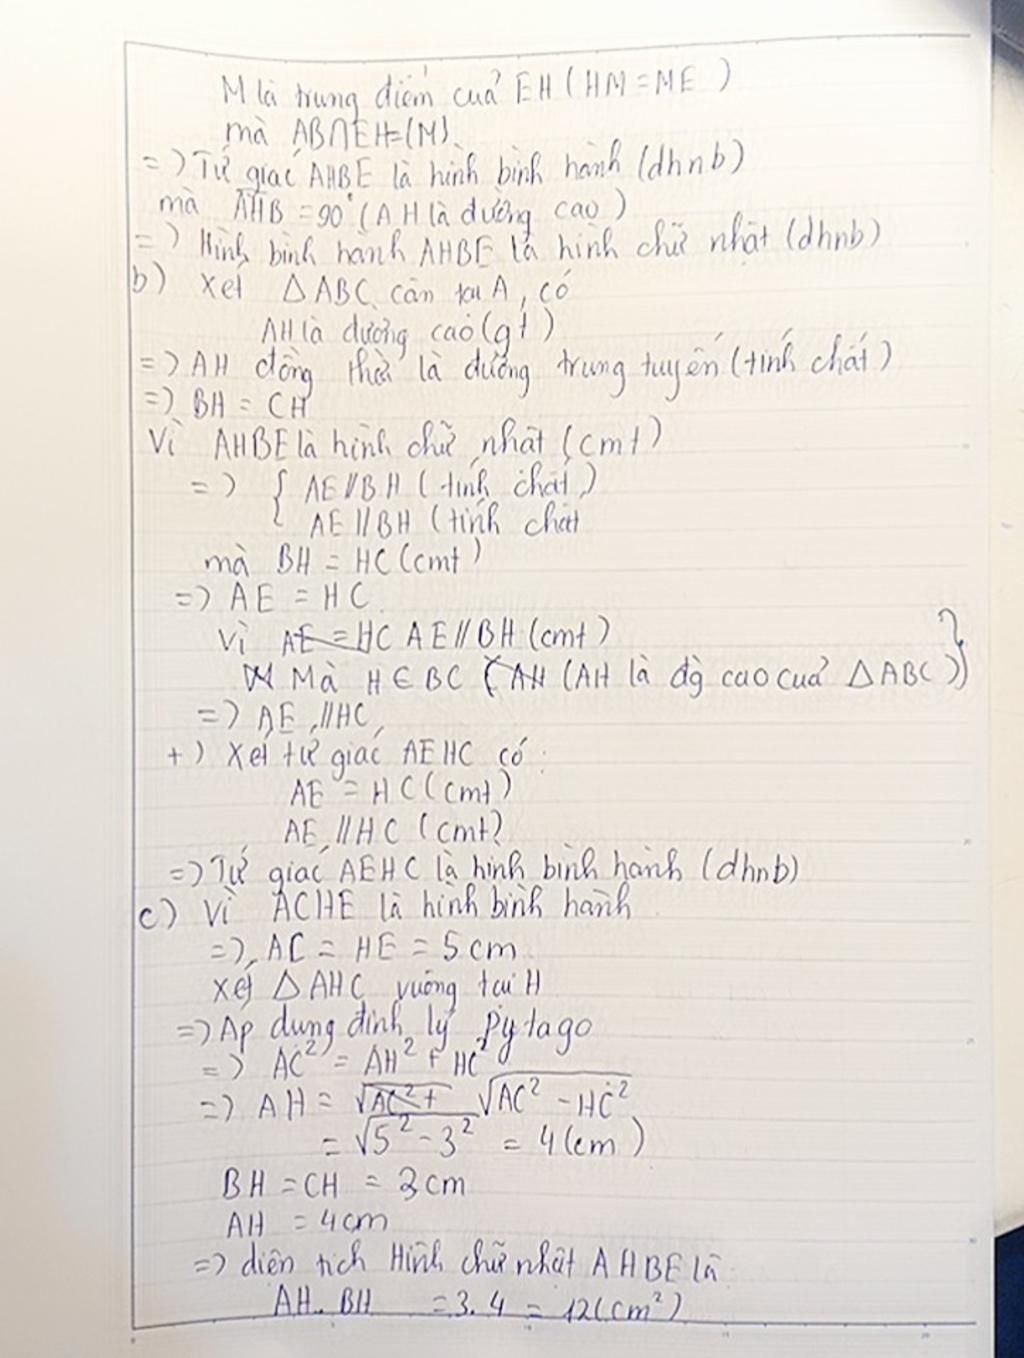 M là trung điểm của EH (HM = ME)
mà AB∩EH={M}
=) Tứ giác AHBE là hình bình hành (dhnb)
mà AHB = 90° (AH là đường cao)
=) Hình bình hành AHBE là hình chữ nhật (dhnb)
b) Xét △ABC cân tại A, có
AH là đường cao (gt)
=) AH đồng thời là đường trung tuyến (tính chất)
=) BH = CH
Vì AHBE là hình chữ nhật (cmt)
=) { AE//BH (tính chất)
AE//BH (tính chất
mà BH = HC (cmt)
=) AE = HC
Vì AE = HC AE//BH (cmt)
Mà H ∈ BC (AH (AH là đg cao của △ABC))
=) AE //HC
+) Xét tứ giác AEHC có:
AE = HC (cmt)
AE //HC (cmt)
=) Tứ giác AEHC là hình bình hành (dhnb)
c) Vì ACHE là hình bình hành
=) AC = HE = 5 cm
Xét △AHC vuông tại H
=) Áp dụng định lý Pytago
=) AC² = AH² + HC²
=) AH = √AC² + √AC² - HC²
= √5² - 3² = 4 (cm)
BH = CH = 3 cm
AH = 4 cm
=) diện tích Hình chữ nhật AHBE là
AH . BH = 3. 4 = 12 (cm²)